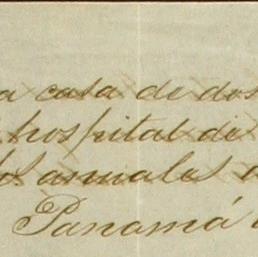 a casa de dos
hospital de
anuales
Panamá